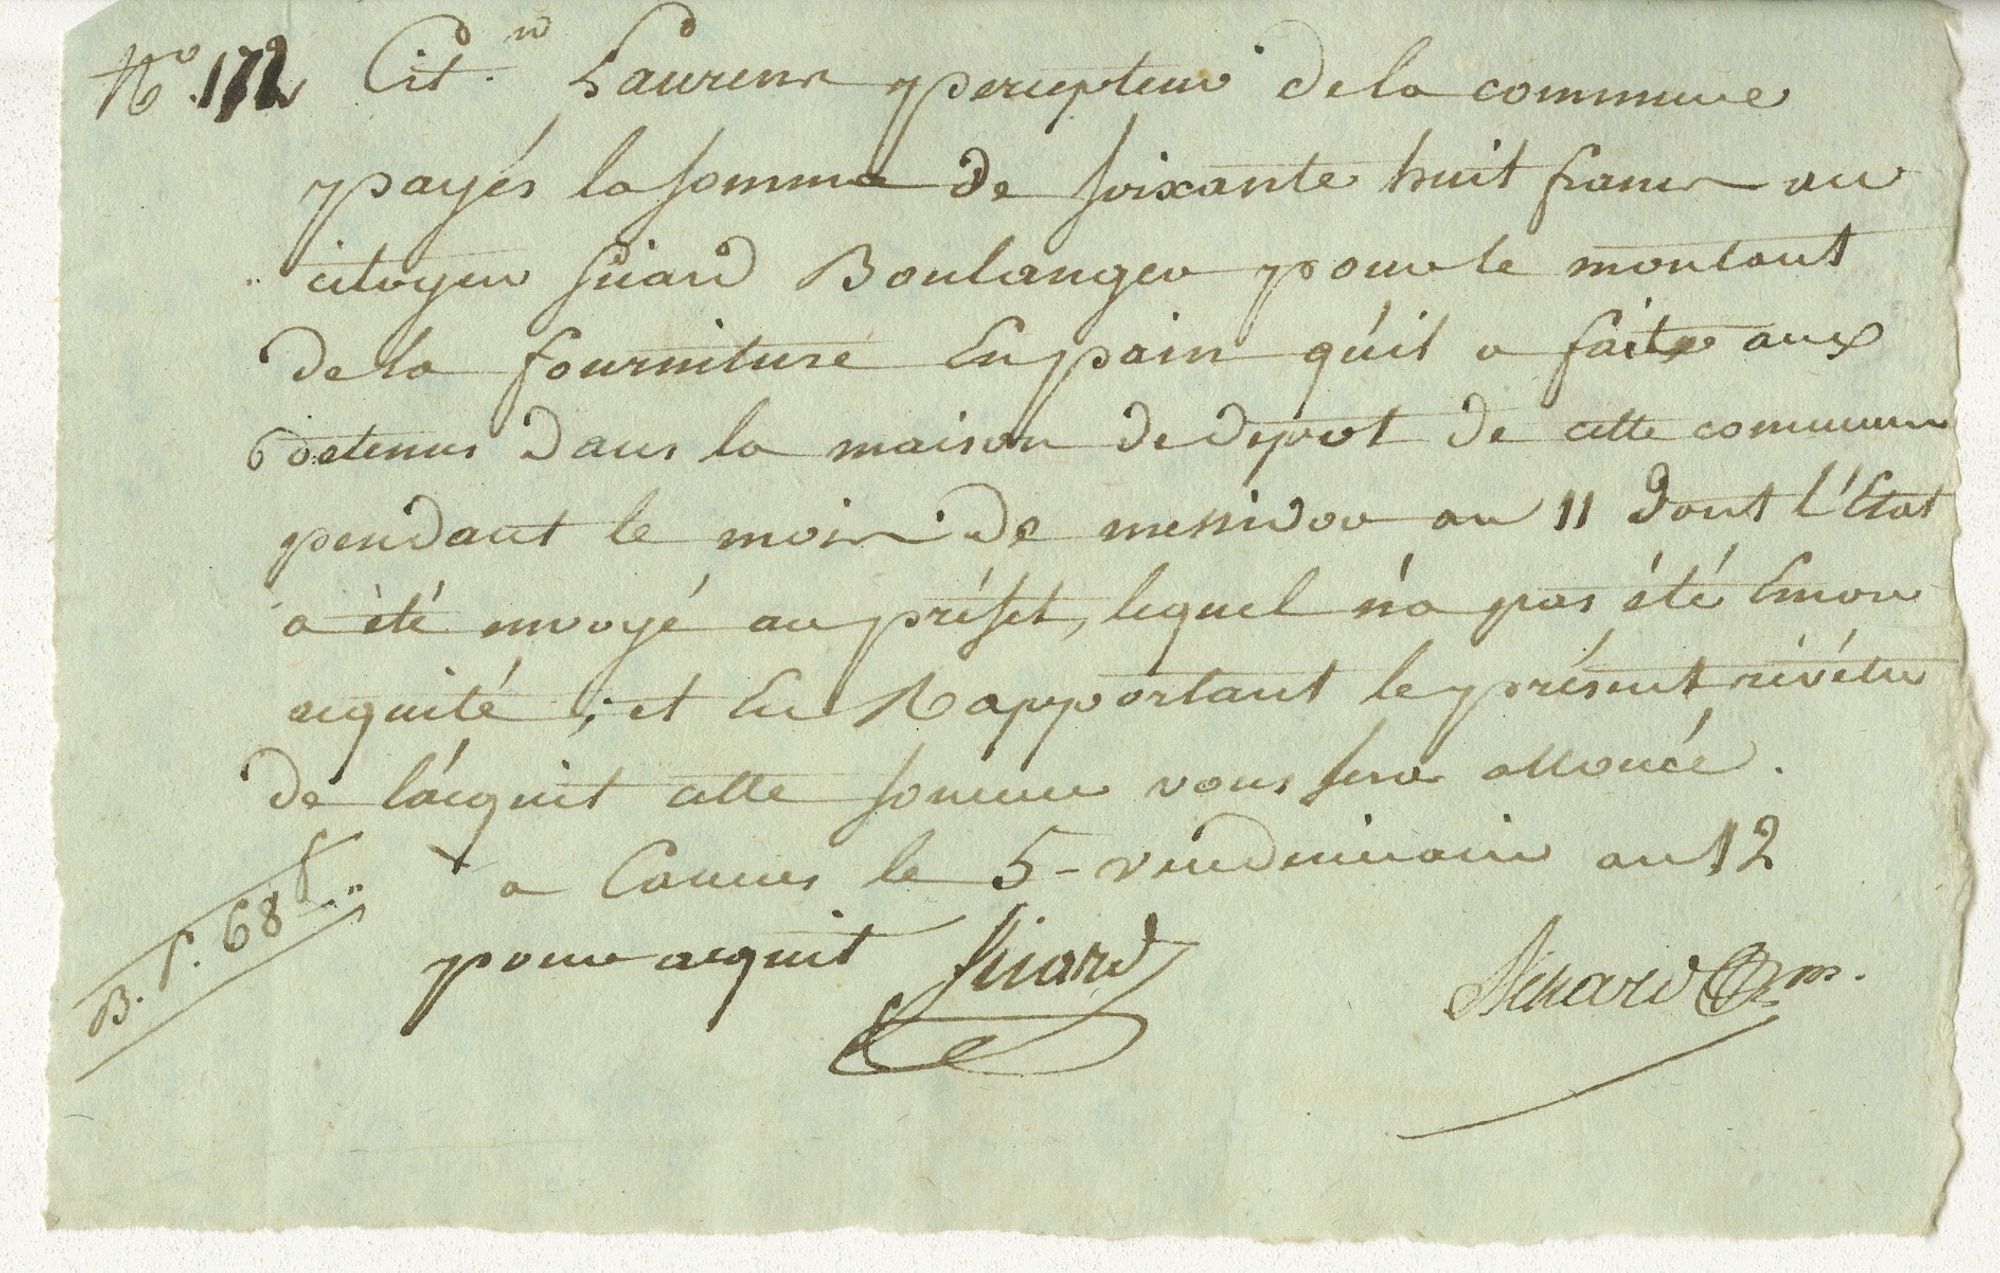 N.º 172 Cit.n Laurens percepteur de la commune
payés la somme de soixante huit francs au
citoyen Girard Boulanger pour le montant
de la fourniture En pain qu'il a faite aux
detenus dans la maison de depot de cette commune
pendant le mois de messidor an 11 dont l'Etat
a été envoyé au préfet, lequel n'a pas été Encore
acquité ; et En Rapportant le présent révétu
de l'acquit cette somme vous sera allouée.
a Cannes le 5 - vendemiaire an 12
B. p. 68 f "
pour acquit